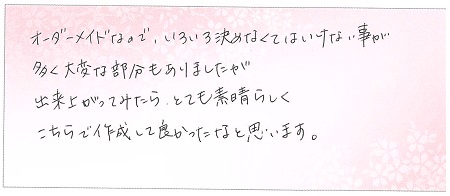 オーダーメイドなので、いろいろ決めなくてはいけない事が
多く大変な部分もありましたが
出来上がってみたら、とても素晴らしく
こちらで作成して良かったなと思います。